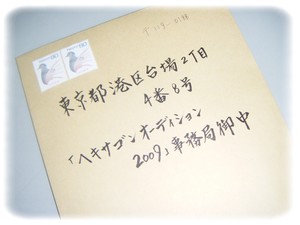 東京都港区台場2丁目
4番8号
「ヘキサゴンオーディション
2009」事務局御中